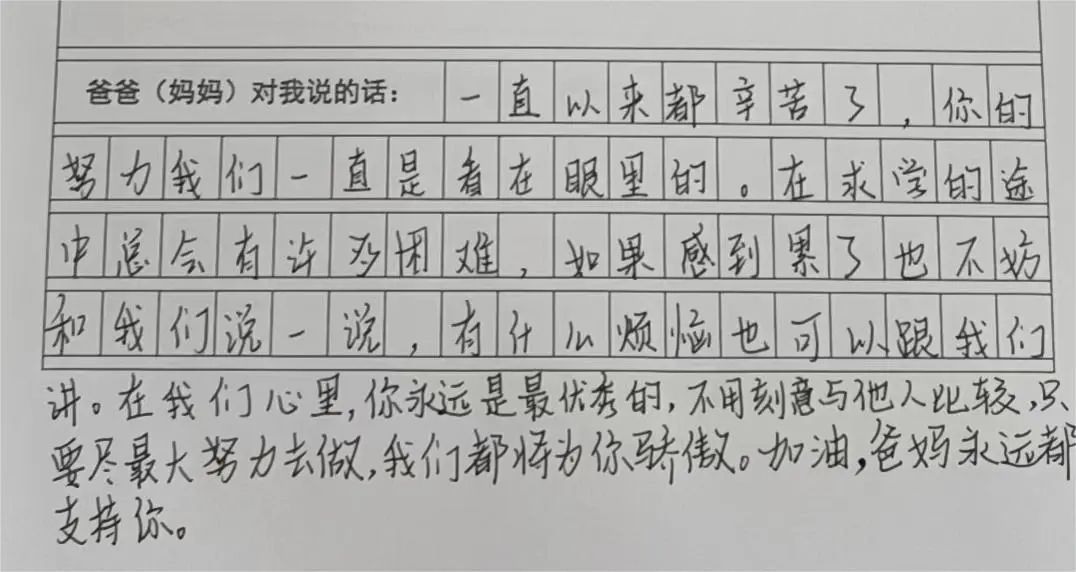 爸爸（妈妈）对我说的话：一直以来都辛苦了，你的
努力我们一直是看在眼里的。在求学的途
中总会有许多困难，如果感到累了也不妨
和我们说一说，有什么烦恼也可以跟我们
讲。在我们心里，你永远是最优秀的，不用刻意与他人比较，只
要尽最大努力去做，我们都将为你骄傲。加油，爸妈永远都
支持你。